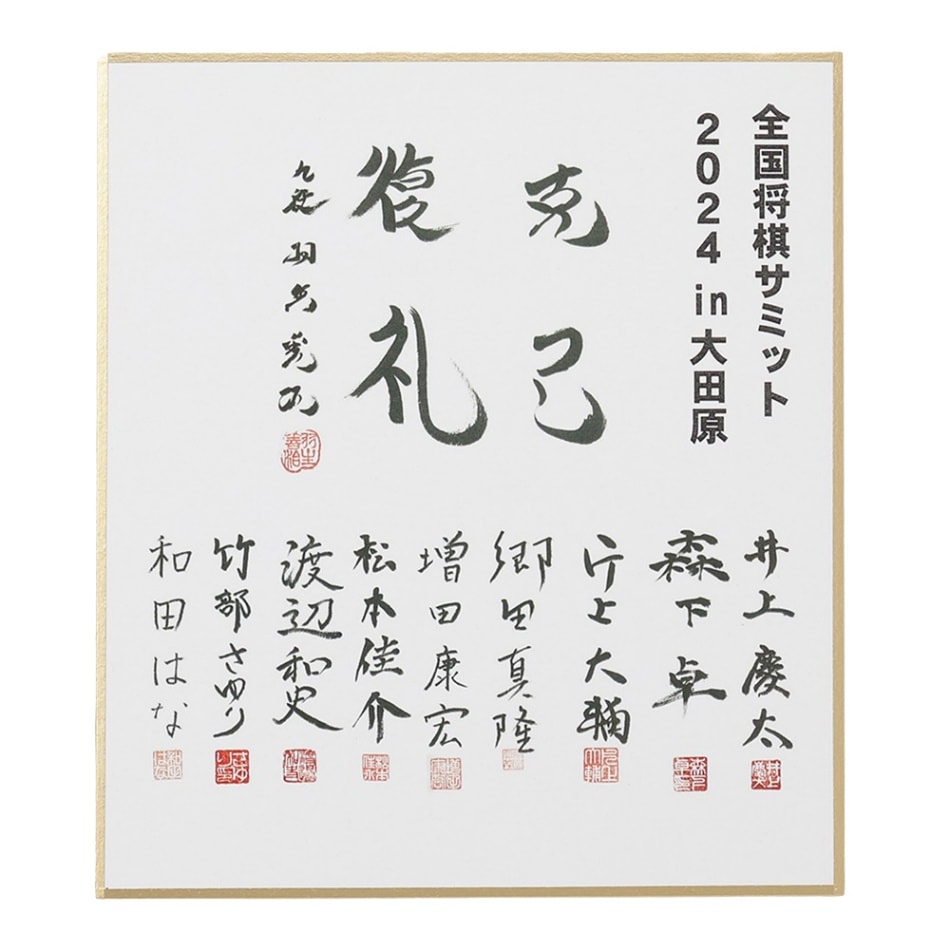 全国将棋サミット
2024 in 大田原
克己
復礼
九段 羽生善治
井上慶太
森下卓
片上大輔
郷田真隆
増田康宏
松本佳介
渡辺和史
竹部さゆり
和田はな